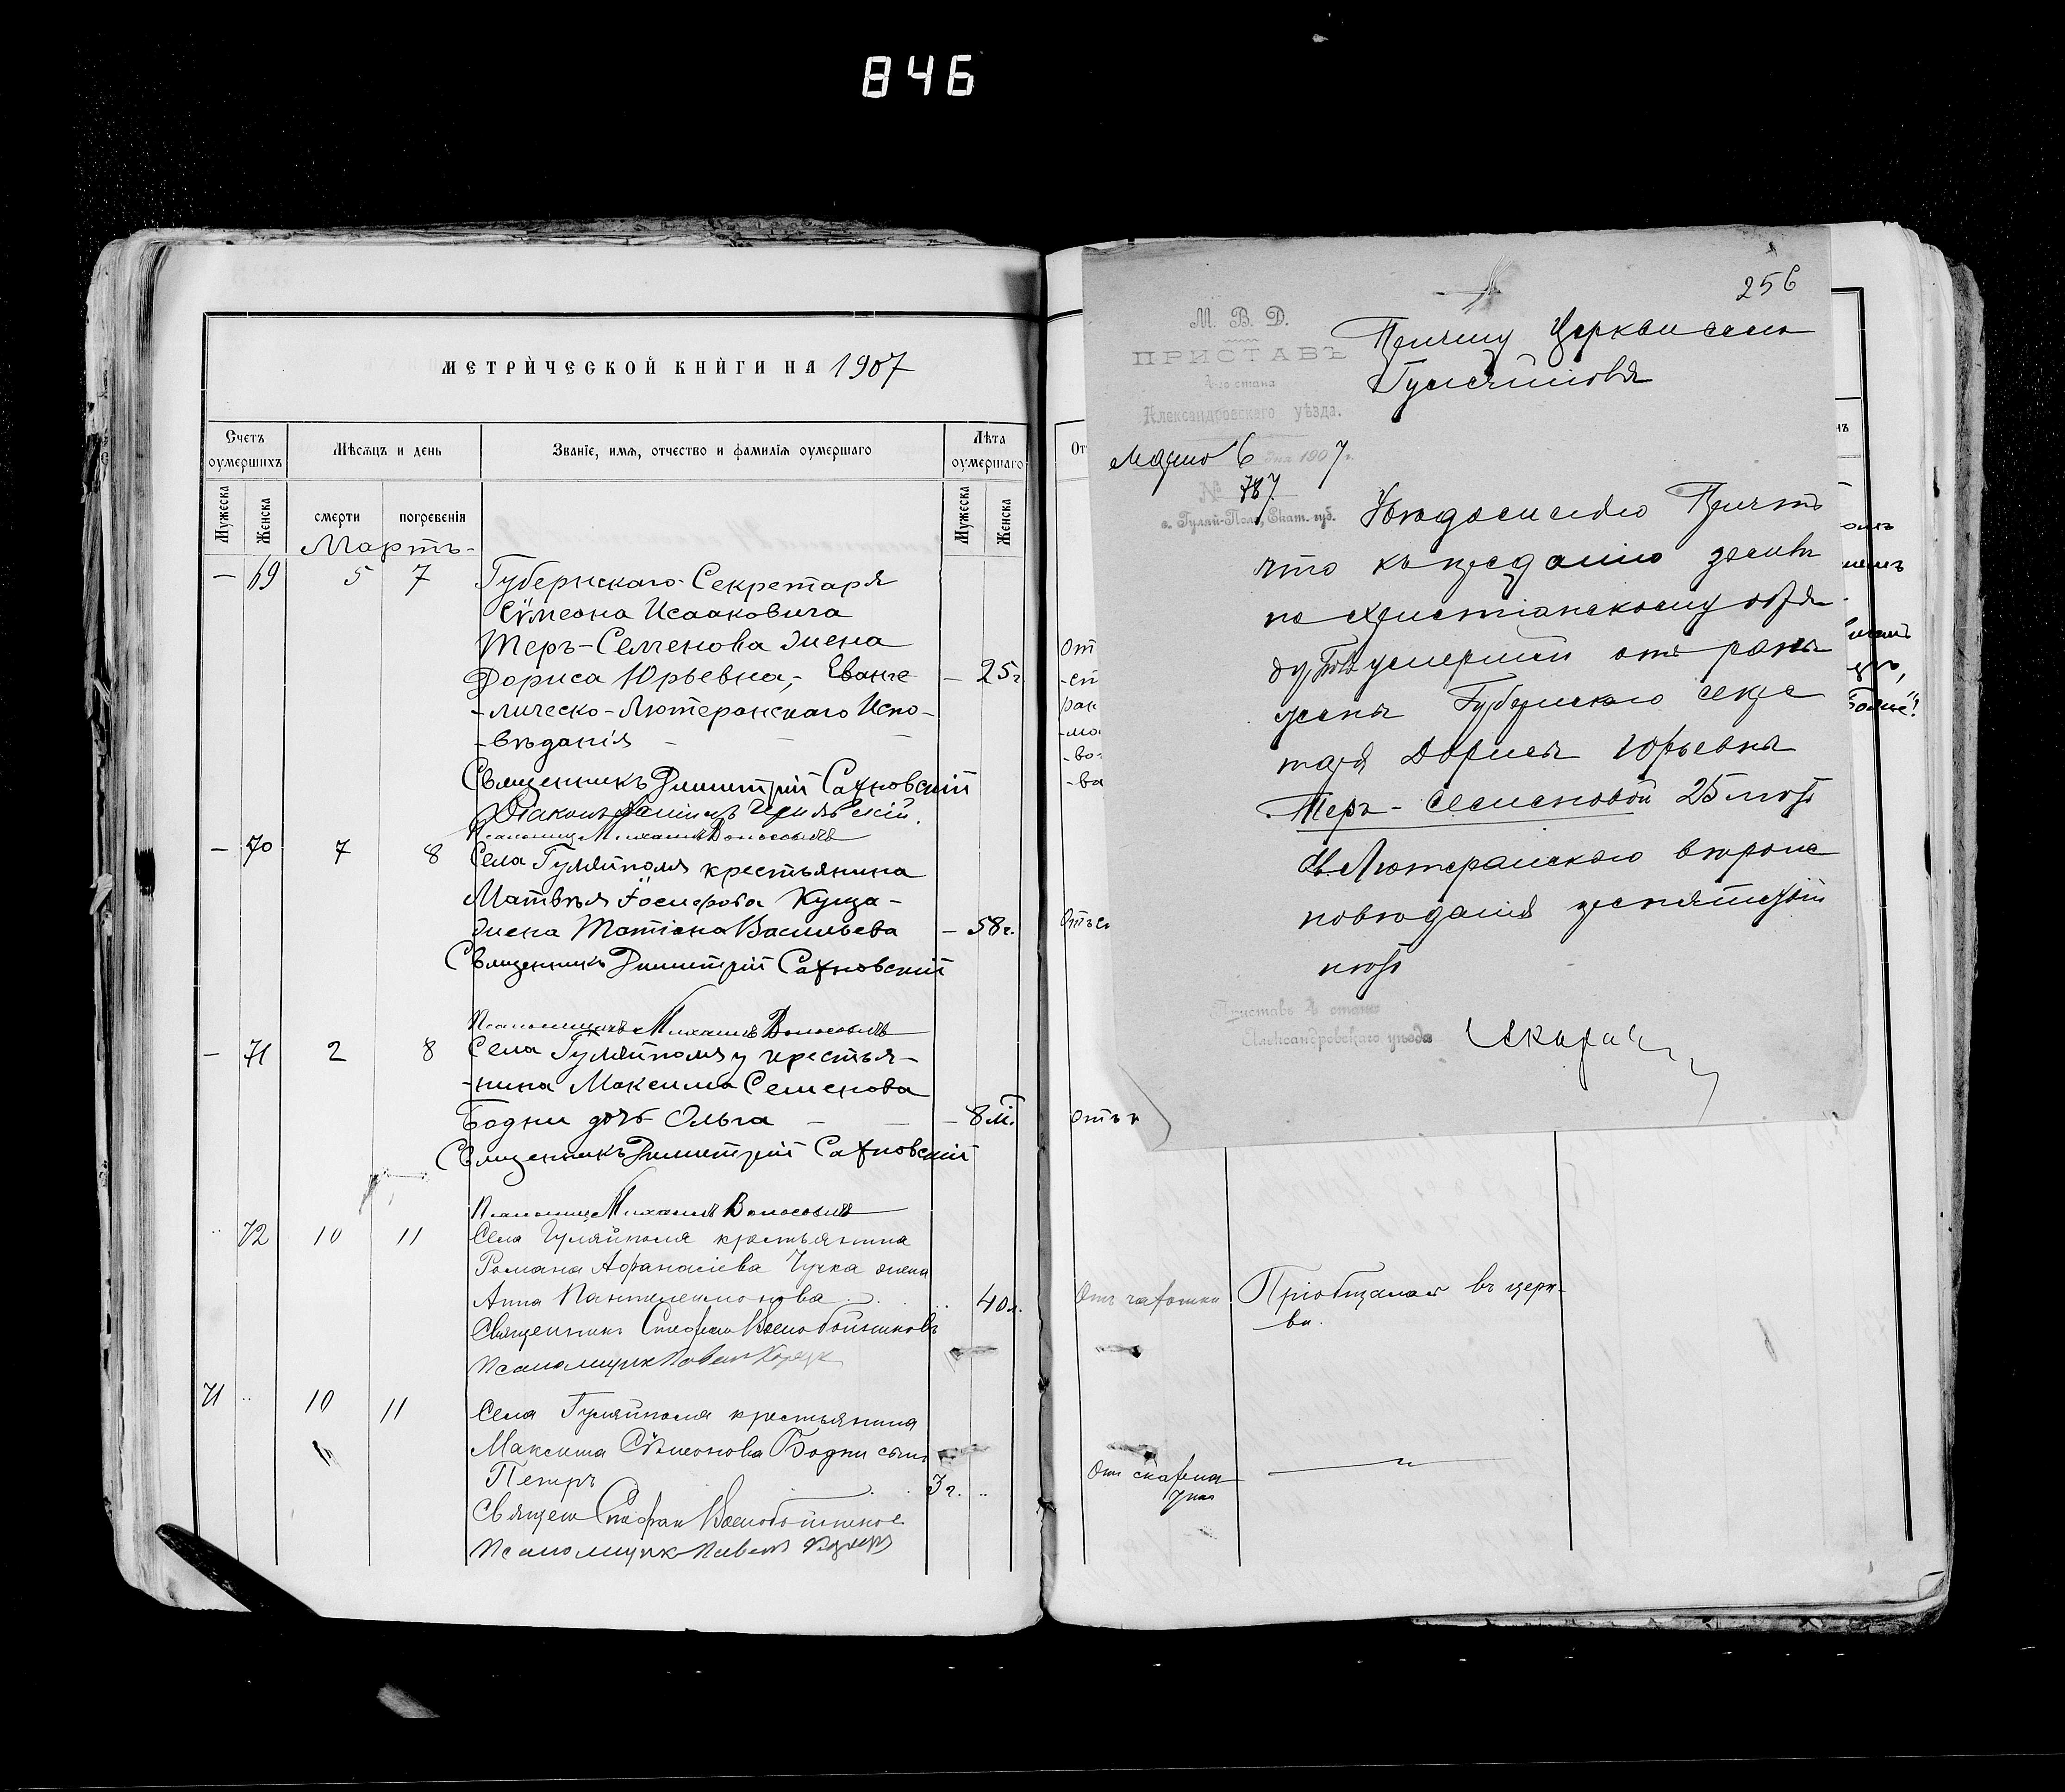 846
МЕТРИЧЕСКОЙ КНИГИ НА 1907
Счетъ оумершихъ
Мѣсяцъ и день
Званіе, имя, отчество и фамилія оумершаго
Лѣта оумершаго
Мужеска
Женска
смерти
погребенія
Мужеска
Женска
Мартъ-
— 69 5 7 Губернскаго Секретаря
Сѵмеона Исааковича
Теръ-Семенова жена
Дориса Юрьевна, Еванге — 25 г
-лическо-Лютеранскаго Испо-
-вѣданія — — —
Священникъ Димитрій Сахновскій
Діаконъ
Псаломщ Михаилъ
— 70 7 8 Села Гуляйполя крестьянина
Матвѣя Іосифова Куща-
жена Татіана Васильева — 58 г.
Священникъ Димитрій Сахновскій
Псаломщикъ Михаилъ
— 71 2 8 Села Гуляйполя крестья-
-нина Максима Семенова
Бодни дочь Ольга — — — 8 м.
Священникъ Димитрій Сахновскій
Псаломщ Михаилъ
.. 72 10 11 Села Гуляйполя крестьянина
Романа Афанасіева Чучка жена
Анна Пантелеимонова .. 40 л.
Священникъ Стефанъ Воснобойниковъ
Псаломщик Павел
71 .. 10 11 Села Гуляйполя крестьянина
Максима Сѵмеонова Бодни сынъ
Петръ 3 г. ..
Священ Стефан
Псаломщик Павелъ
От
От
-ст
ран
-мо
-во
-ва
Отъ
Отъ
Отъ чахотки Пріобщалас въ церк-
ви.
От скарла
тина
256
М. В. Д.
ПРИСТАВЪ
4-го стана
Александровскаго уѣзда.
Марта 6 дня 1907 г.
№ 787
с. Гуляй-Поле, Екат. губ.
Причту Церкви села
Гуляйполя
Увѣдомляю Причтъ
что къ преданію землѣ
по христіанскому обря
ду тѣла умершей отъ раны
жены Губернскаго секре
таря Дорисы Юрьевны
Теръ-Семеновой 25 лѣтъ
Ев. Лютеранскаго вѣроис
повѣданія препятствій
нѣтъ
Приставъ 4 стана
Александровскаго уѣзда